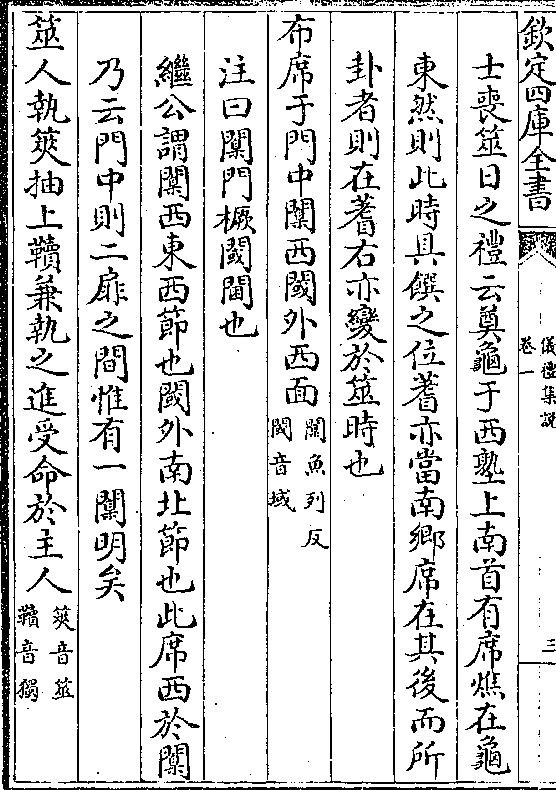 欽定四庫全書
儀禮集說
卷一
三
士喪筮日之禮云奠龜于西塾上南首有席燋在龜
東然則此時具饌之位蓍亦當南鄉席在其後而所
卦者則在蓍右亦變於筮時也
布席于門中闑西閾外西面闑魚列反閾音域
注曰闑門橛閾閫也
繼公謂闑西東西節也閾外南北節也此席西於闑
乃云門中則二扉之間惟有一闑明矣
筮人執筴抽上韇兼執之進受命於主人筴音筮韇音獨